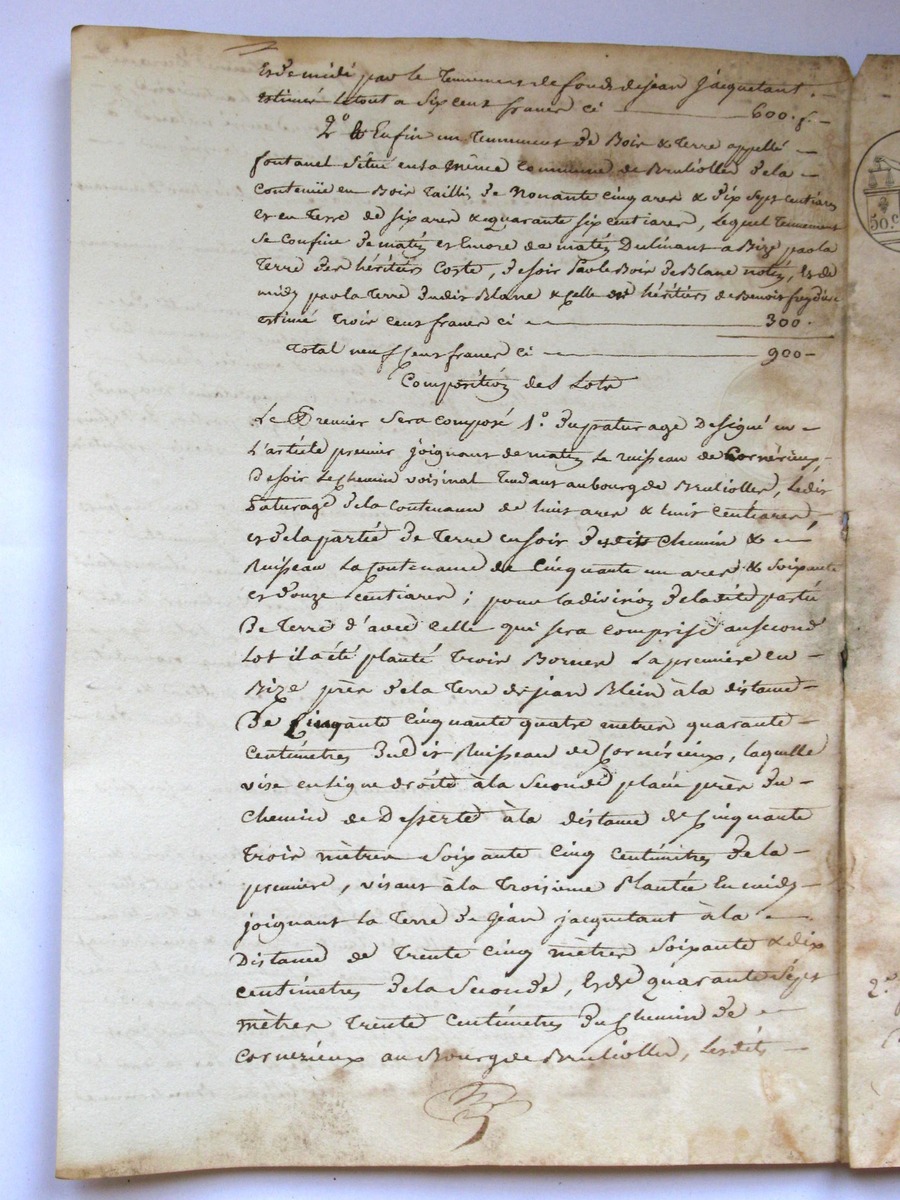 et de midi par le Tennement de fonds de jean jacquetant.
estimés le tout a Six cent francs ci 600. f.
2° Enfin un Tennement de Bois & Terre appellé
fontanel Situé en la même Commune de Brulioller de la
Contenüe en Bois Taillis de Nonante Cinq ares & dix Sept centiares
et en Terre de six ares & quarante six centiares, Lequel Tennement
Se Confine de matin et Encore de matin Declinant a Bize par la
Terre des héritiers Coste, de soir Par le Bois de Blanc, et de
midi par la Terre dudit Blanc & Celle des héritiers de Benoit
estimé Trois Cent francs ci 300.
Total neuf Cent francs ci 900
Composition des Lots
Le Premier Sera composé 1.° du paturage Designé en
L'article premier joignant de matin Le Ruisseau de Cornérieux,
De soir Le Chemin voisinal Tendant au bourg de Brulioller, Ledit
Paturage de la Contenance de huit ares & huit Centiares,
et de la partie de Terre en soir dudit Chemin & en
Ruisseau La Contenance de Cinquante un ares & Soixante
et douze Centiares; pour la division de la dite partie
De Terre d'avec Celle qui sera comprise au second
Lot il a été planté Trois Bornes La première en
Bize près de la Terre de jean Blein à la distance
De Cinquante Cinquante quatre mètres quarante
Centimètres dudit Ruisseau de Cornérieux, laquelle
vise en Ligne droite à la Seconde placée près du
Chemin de Desserte à la distance de Cinquante
Trois mètres Soixante Cinq Centimètres de la
première, visant à la Troisième Plantée En midy
joignant La Terre de jean jacquetant à la
Distance de Trente Cinq mètres Soixante & dix
centimètres de la Seconde, et de quarante Sept
mètres Trente Centimètres du Chemin de
Cornérieux au Bourg de Brulioller, Lesdits
50.c
2.°